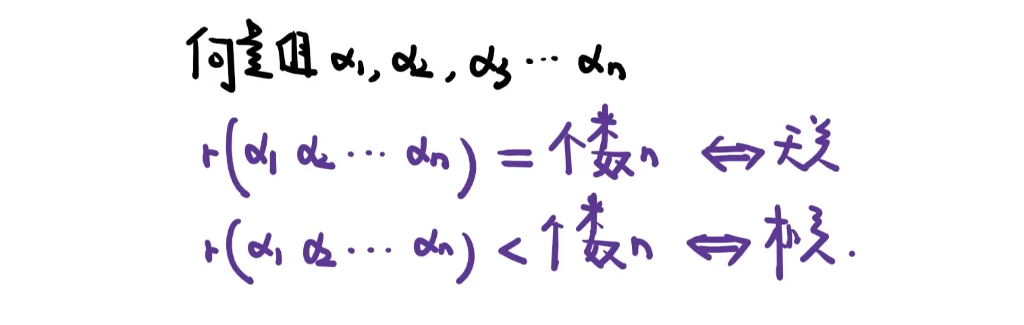 向量组 α₁, α₂, α₃ ⋯ αₙ
r(α₁ α₂ ⋯ αₙ) = 个数n ⇔ 无关
r(α₁ α₂ ⋯ αₙ) < 个数n ⇔ 相关.